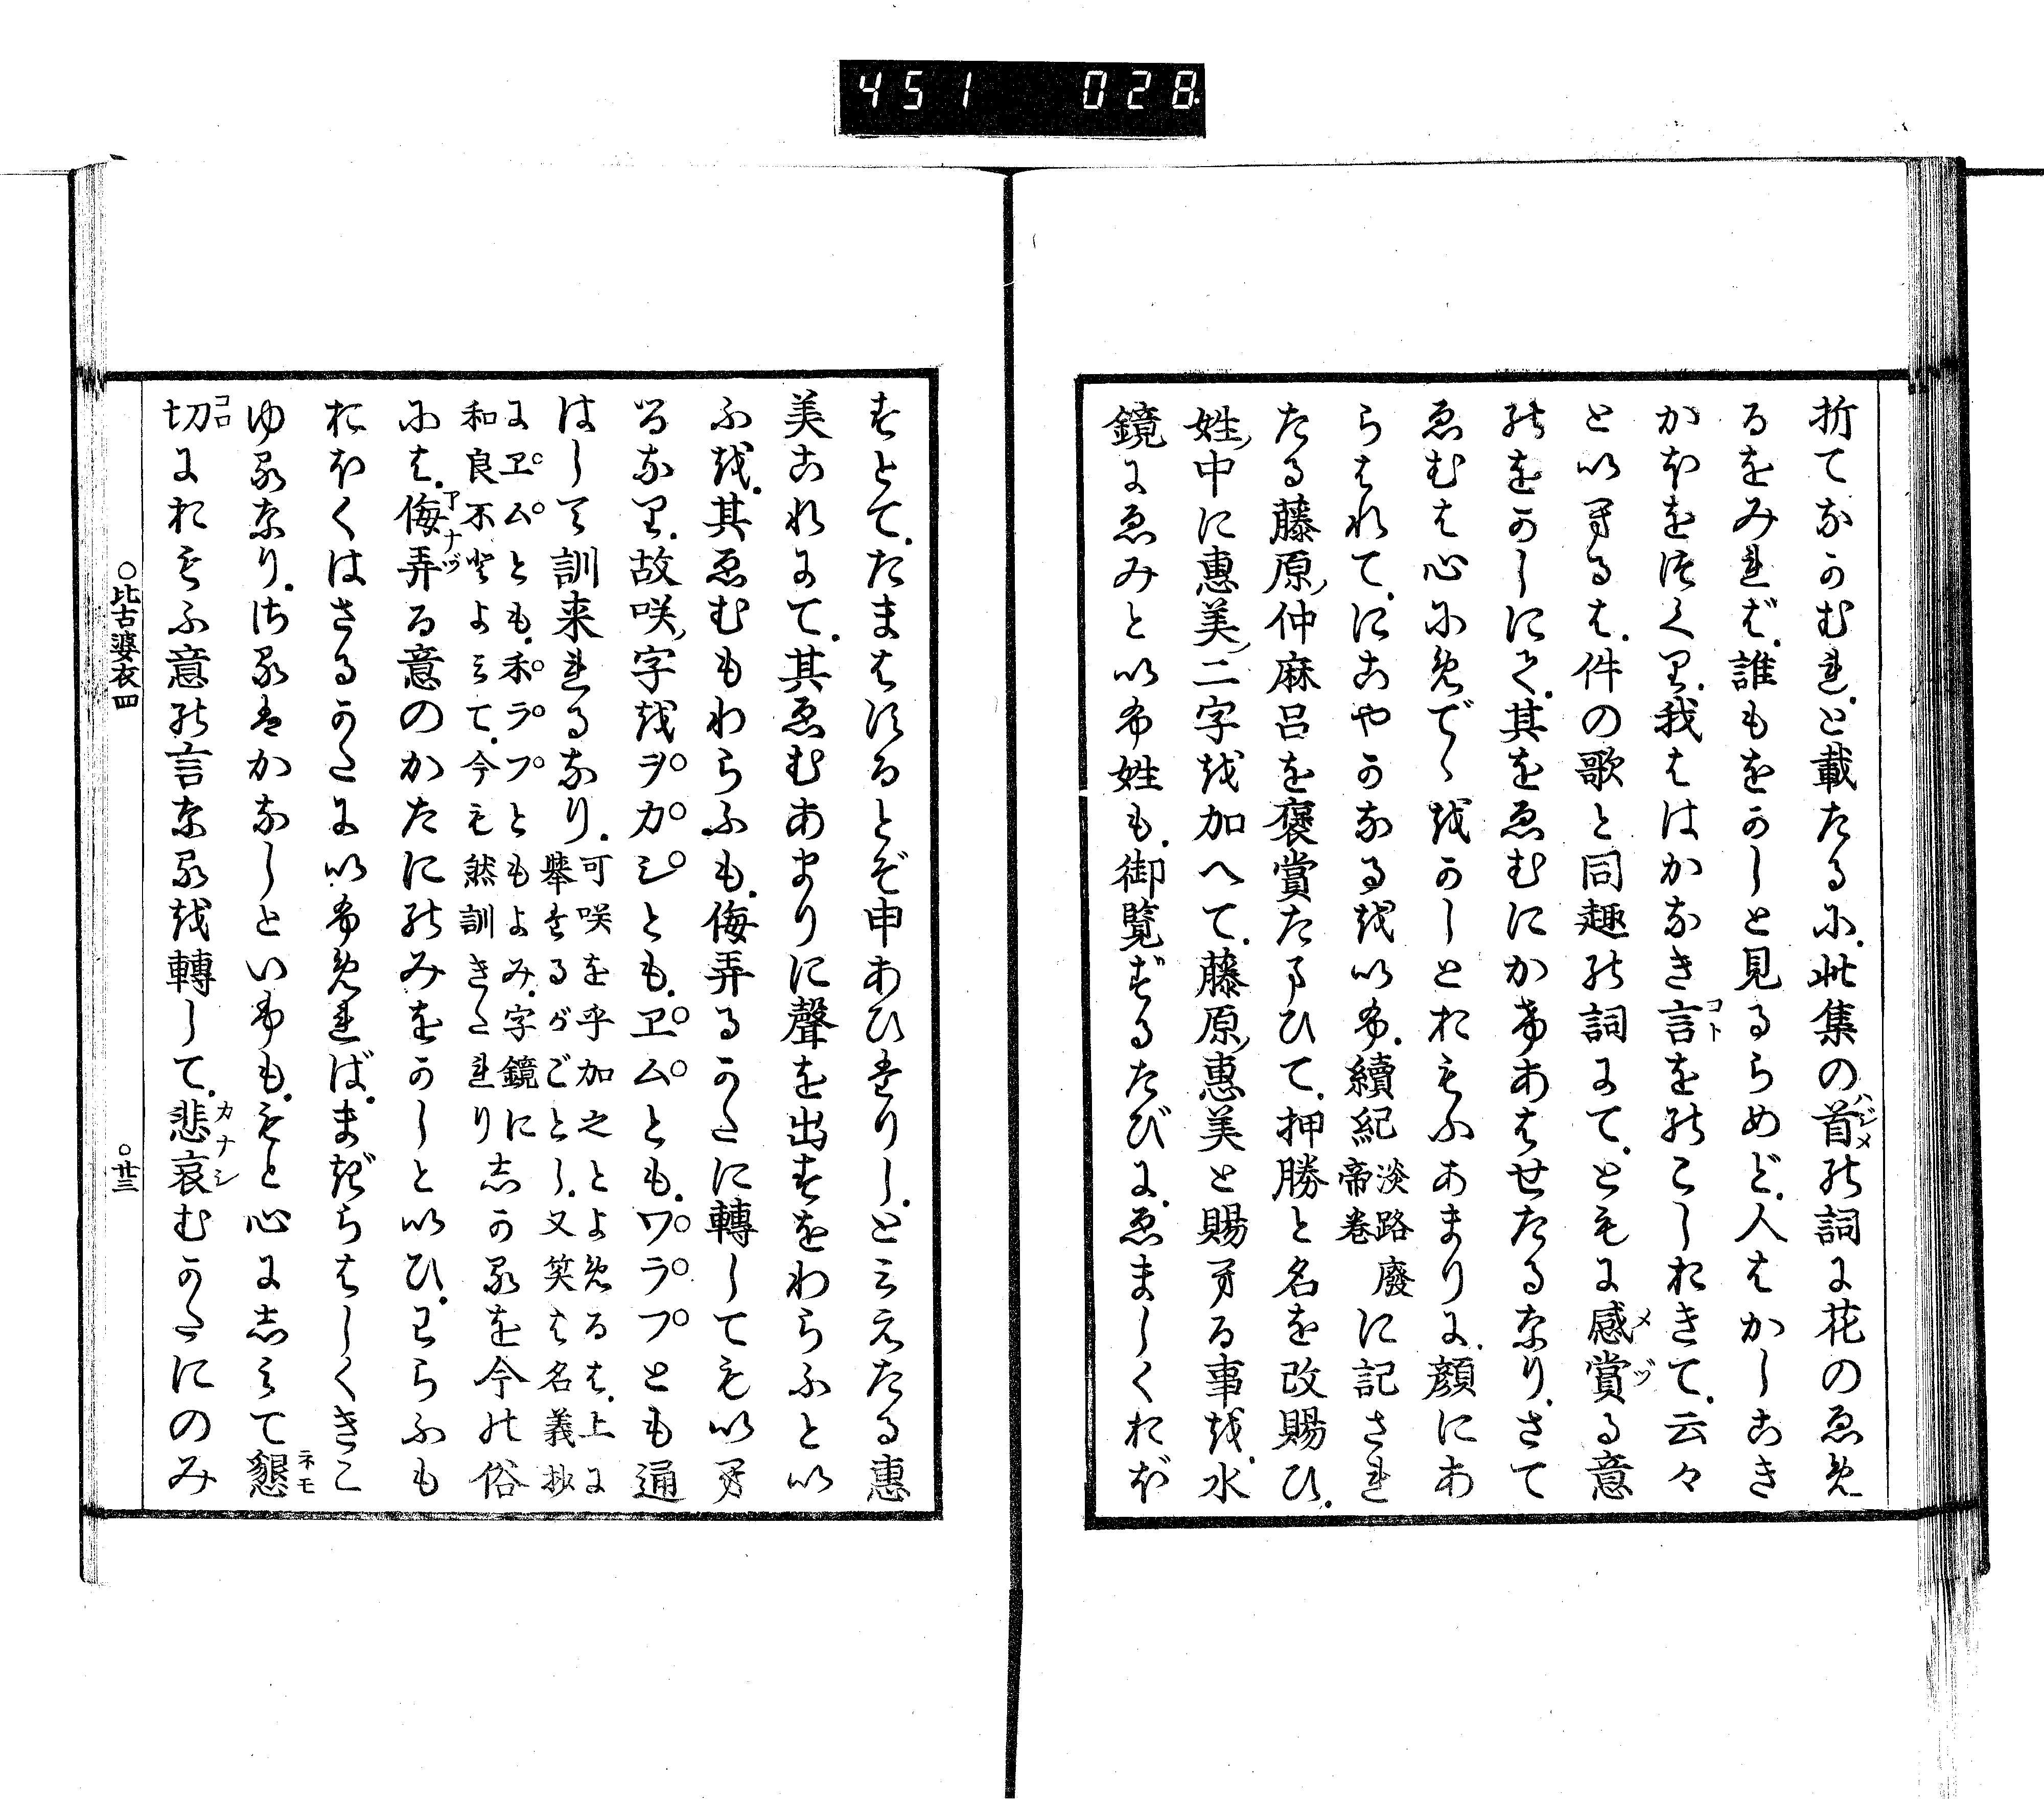 451 028
折てながむれ。と載たるに。此集の首の詞に花のゑめ
るをみれば。誰もをかしと見るらめど。人はかしこき
かほをつくり。我ははかなき言をのこしおきて。云々
といへるは。件の歌と同趣の詞にて。ともに感賞る意
のをかしにて。其をゑむにかけあはせたるなり。さて
ゑむは心にめでゝをかしとおもふあまりに。顔にあ
らはれて。にこやかなるをいふ。續紀淡路廢帝卷に記され
たる藤原仲麻呂を褒賞たまひて。押勝と名を改賜ひ。
姓中に惠美二字を加へて。藤原惠美と賜へる事を。水
鏡にゑみといふ姓も。御覽ずるたびに。ゑましくおぼ
すとて。たまはするとぞ申あひたりし。と見えたる惠
美これにて。其ゑむあまりに聲を出すをわらふとい
ふを。其ゑむもわらふも。侮弄るかたに轉してもいへ
るなり。故咲字をヲカシとも。ヱムとも。ワラフとも通
はして訓来れるなり。可咲を乎加之とよめるは。上に
擧たるがごとし。又笑は名義抄
にヱムとも。ワラフともよみ。字鏡に
和良不とよみて。今も然訓きたれり
しかるを今の俗
には。侮弄る意のかたにのみをかしといひ。わらふも
おほくはさるかたにいふめれば。まぎらはしくきこ
ゆるなり。さるはかなしといふも。もと心にしみて懇
切におもふ意の言なるを轉して。悲哀むかたにのみ
○比古婆衣四
○廿三